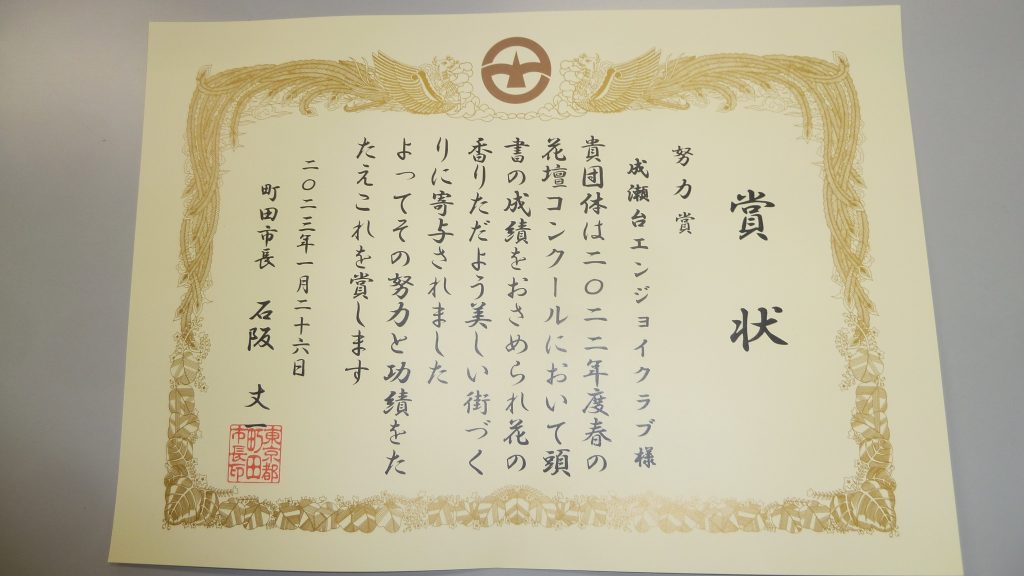 賞状
努力賞
成瀬台エンジョイクラブ様
貴団体は二〇二二年度春の
花壇コンクールにおいて頭
書の成績をおさめられ花の
香りただよう美しい街づく
りに寄与されました
よってその努力と功績をた
たえこれを賞します
二〇二三年一月二十六日
町田市長 石阪丈一
東京都
町田
市長印